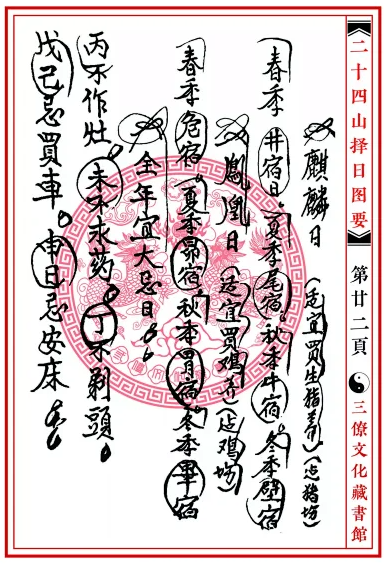 二十四山择日图要 第廿二頁 三僚文化藏書館
麒麟日(适宜買生猪养)(造猪坊)
春季井宿日。夏季尾宿。秋季牛宿。冬季壁宿
鳳凰日(适宜買鸡养)(造鸡坊)
春季危宿。夏季昴宿。秋季胃宿。冬季畢宿
全年宜大忌日。
丙不作灶。未不永药。丁不剃頭。
戊己忌買車。申日忌安床。